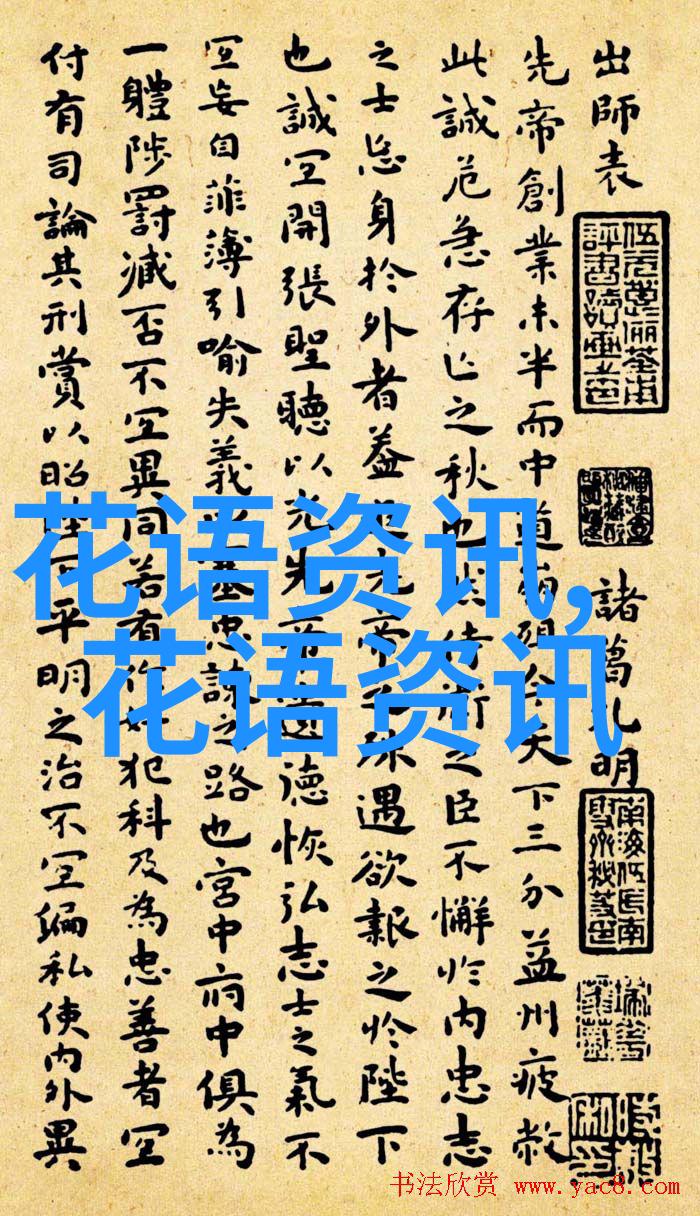 出師表
諸葛孔明
先帝創業未半而中道崩殂今天下三分益州疲敝
此誠危急存亡之秋也然侍衛之臣不懈於内忠志
之士忘身於外者蓋追先帝之殊遇欲報之於陛下
也誠宜開張聖聽以光先帝遺德恢弘志士之氣不
宜妄自菲薄引喻失義以塞忠諫之路也宮中府中俱為
一體陟罰臧否不宜異同若有作奸犯科及為忠善者宜
付有司論其刑賞以昭陛下平明之治不宜偏私使内外異
花语资讯,
花语资讯
书法欣赏 www.yac8.com